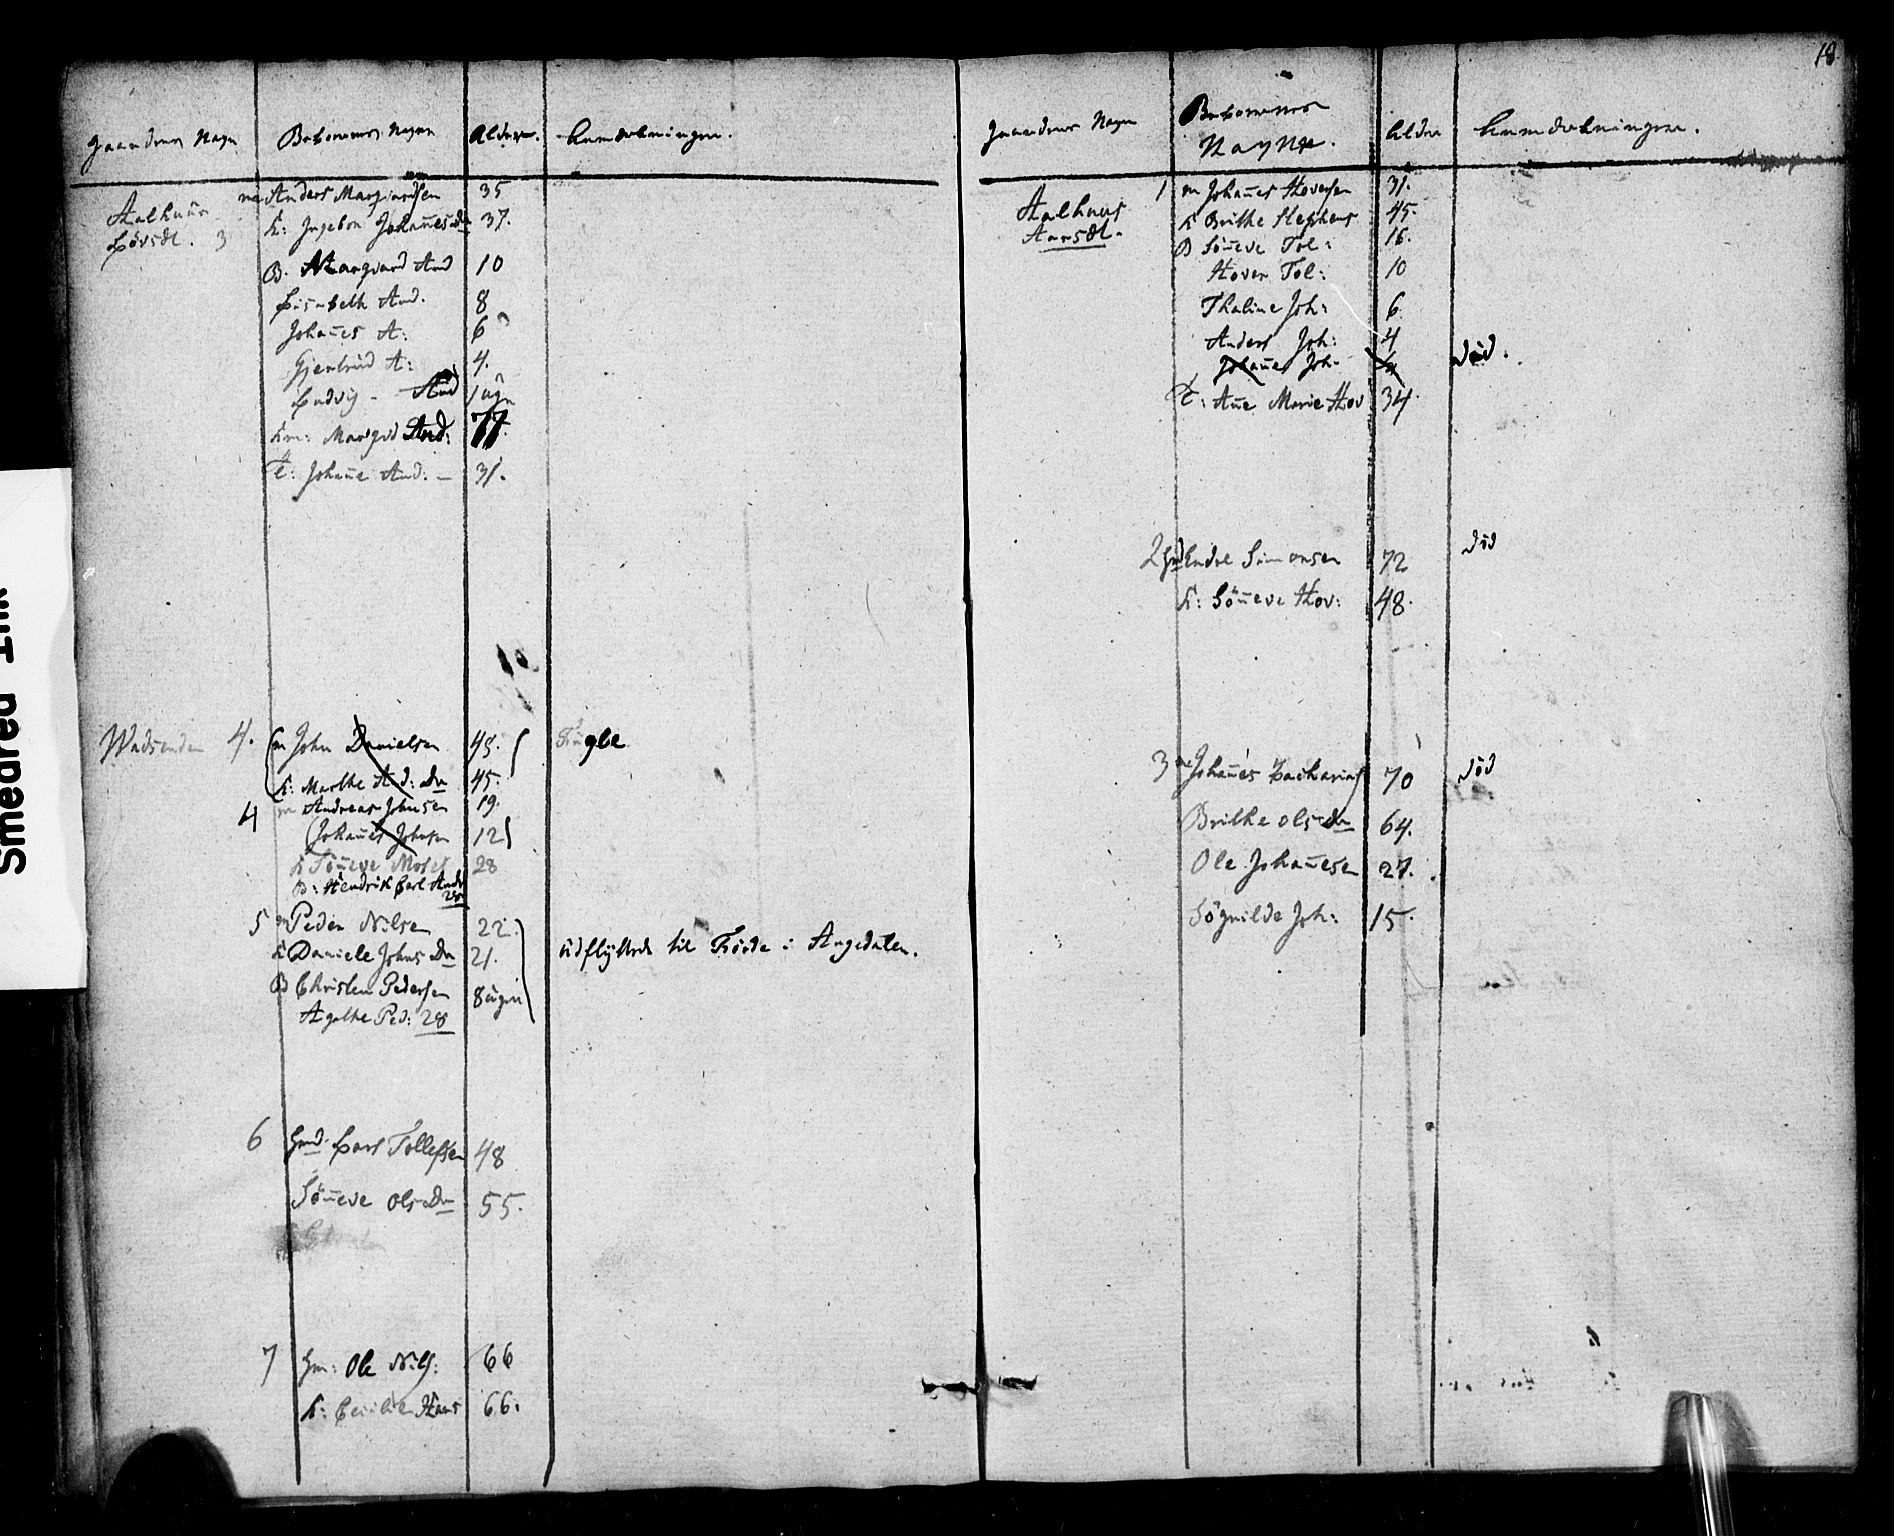 18
Gaardenes Nagn Beboernes Nagne Alder. Anmerkninger.
Aalhuus m Anders Marqvardsen 35
Løvsdt. 3 K: Ingebor Johañes Dn 37.
B. Marqvard And 10
Lisabeth And. 8
Johañes A: 6
Gjertrud A: 4.
Ludvig - And 1 ugn
Km: Marqvd And: 77.
T: Johañe And: - 31.
Wadsenden 4. m John Danielsen 49.
K: Marthe And: Dn 45.
4 m Andreas Johnsen 19.
Johañes Johnsen 12
K Söneve Moses 28
B: Hendrik Carl Andr
28
5 m Peder Nilsen 22.
K Daniele Johns Dn 21.
udflyttede til Förde i Angedalen.
B Christen Pedersen 8 ugn
Agathe Ped: 28
6 Hmd. Lars Tollefsen 48
Söñeve Ols Dn 55.
7 Hm: Ole Nils: 66
K: Cecilie Hans 66.
Gaardenes Nagn Beboernes Nagne. Alder Anmerkninger.
Aalhuus 1 m Johañes Hovensen 31.
Aarsdt. K Brithe Stephens 45.
B Söñeve Tol: 16.
Hoven Tol: 10
Thaline Joh: 6
Anders Joh: 4
Johañe Joh: död.
T: Añe Marie Hov 34.
2 Hmd Endre Simonsen 72 död
K: Söñeve Hov: 48.
3 m Johañes Zacharias 70 död
Brithe Ols Dn 64.
Ole Johañesen 27.
Sögnilde Joh: 15.
Smedred